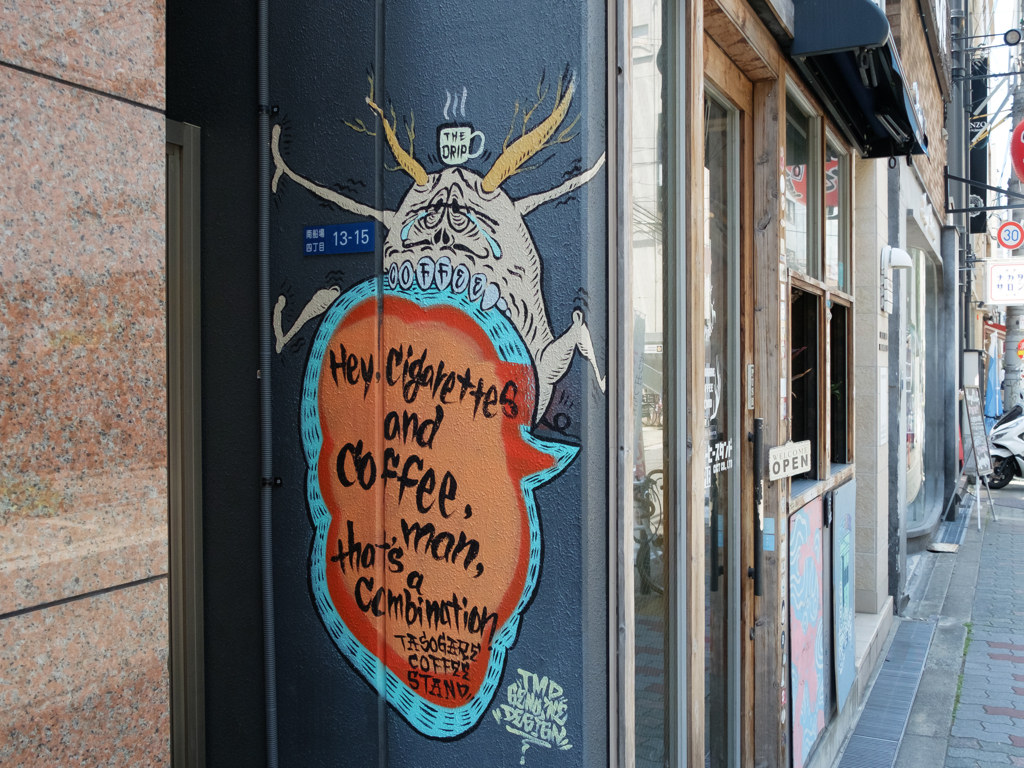 THE
DRIP
南船場
四丁目
13-15
COFFEE
Hey, Cigarettes
and
Coffee,
man,
that's
a
Combination
TASOGARE
COFFEE
STAND
TMD
GENUINE
DESIGN
WELCOME
OPEN
30